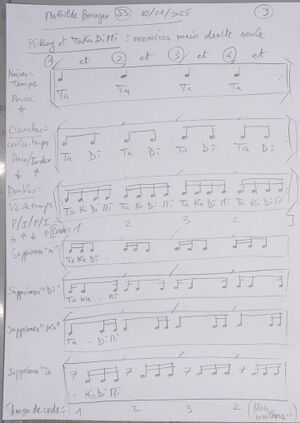 Mathilde Bourges JS 10/01/2025 3
Picking et TaKaDiMi : exercices main droite seule
1 et 2 et 3 et 4 et
Noires=
Temps
Pouce
Ta Ta Ta Ta
Croches=
Ta Di Ta Di Ta Di Ta Di
Pouce/Index
Doubles=
1/4 de temps
Ta Ka Di Mi Ta Ka Di Mi Ta Ka Di Mi Ta Ka Di Mi
P/I/P/I
Code: 1 2 3 2
Supprimer "Mi"
Ta Ka Di -
Supprimer "Di"
Ta Ka - Mi
Supprimer "Ka"
Ta - Di Mi
Supprimer "Ta
- Ka Di Mi
Changer de code: 1 2 3 2